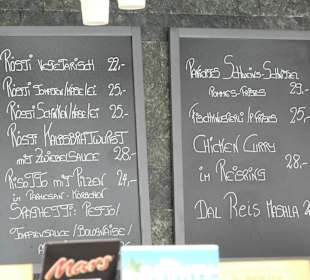 Rösti Vegetarisch 22.-
Rösti Tomaten/Käse/Ei 25.-
Rösti Schinken/Käse/Ei 25.-
Rösti Kalbsbratwurst
mit Zwiebelsauce 28.-
Risotto mit Pilzen 24.-
im Parmesan-Körbchen
Spaghetti: Pesto/
Tomatensauce/Bolognaise/
Mars
Paniertes Schweins-Schnitzel
Pommes-Frites 29.-
25.-
Chicken Curry
im Reisring 28.-
Dal Reis Masala